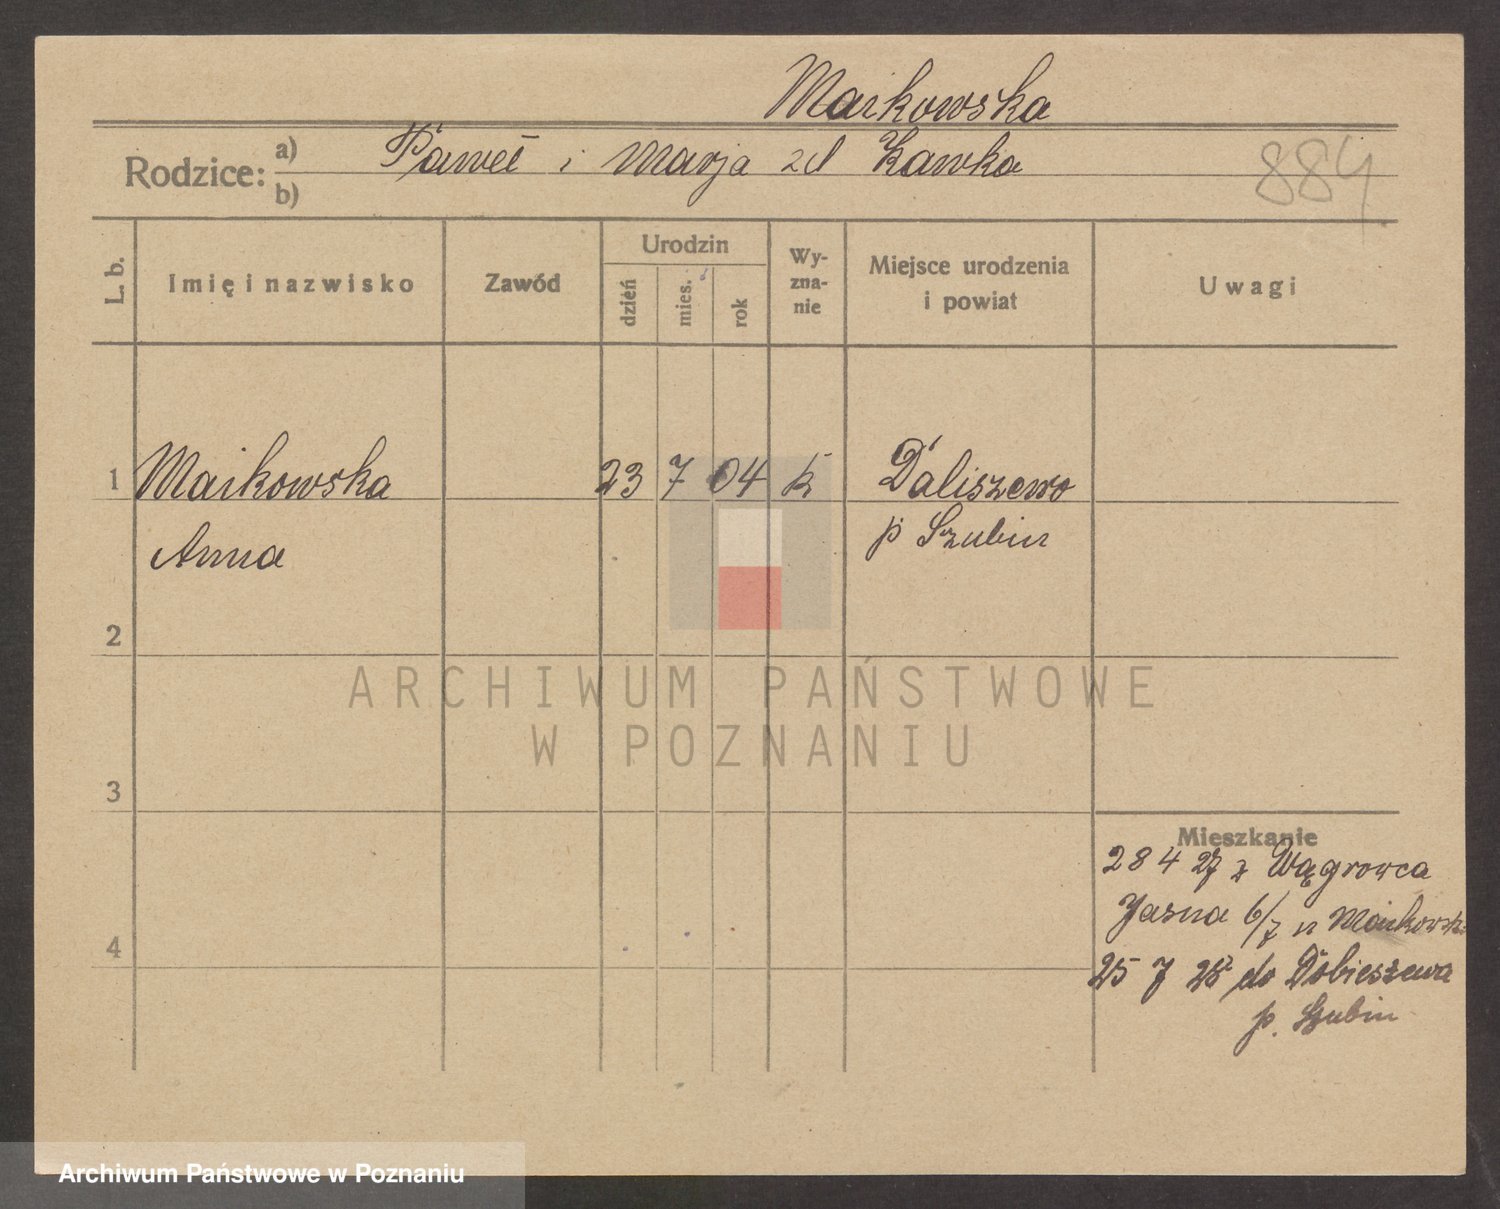 Markowska
Rodzice: a) Paweł i Marja zd Kawka
b)
884
L. b.
Imię i nazwisko
Zawód
Urodzin
dzień
mies.
rok
Wy-
zna-
nie
Miejsce urodzenia
i powiat
Uwagi
1 Markowska 23 7 04 k Daliszewo
Anna p Szubin
2
3
4
Mieszkanie
28 4 27 z Wągrowca
Jasna 6/7 u Markowsk
25 7 28 do Dobieszewa
p. Szubin
ARCHIWUM PAŃSTWOWE
W POZNANIU
Archiwum Państwowe w Poznaniu